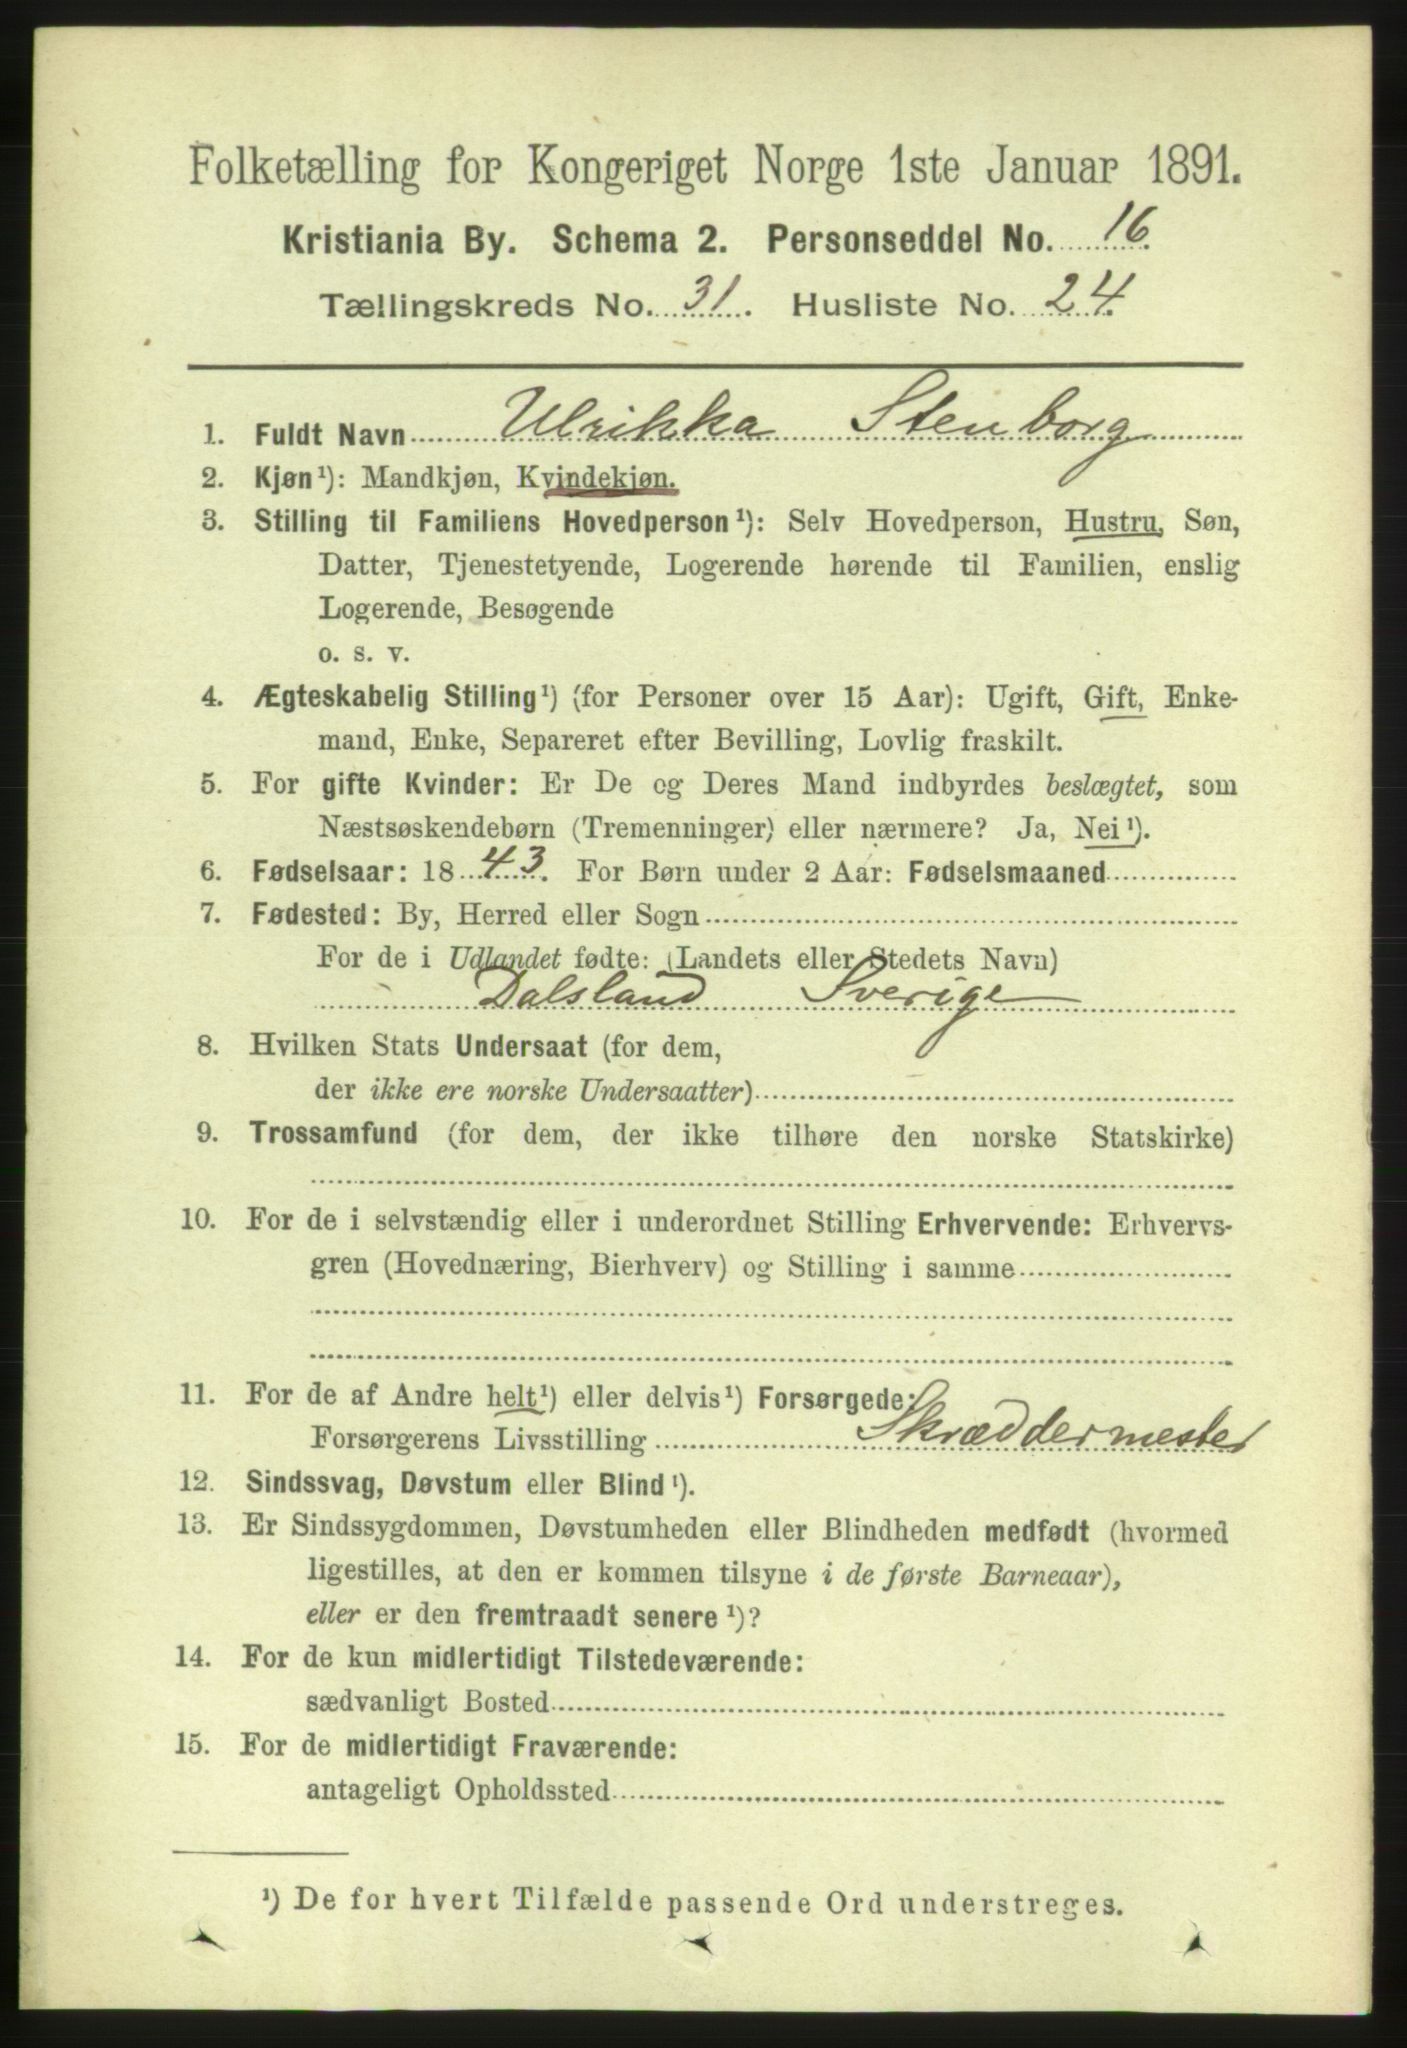 Folketælling for Kongeriget Norge 1ste Januar 1891.
Kristiania By. Schema 2. Personseddel No. 16.
Tællingskreds No. 31. Husliste No. 24.
1. Fuldt Navn Ulrikka Stenborg
2. Kjøn¹): Mandkjøn, Kvindekjøn.
3. Stilling til Familiens Hovedperson¹): Selv Hovedperson, Hustru, Søn,
Datter, Tjenestetyende, Logerende hørende til Familien, enslig
Logerende, Besøgende
o. s. v.
4. Ægteskabelig Stilling¹) (for Personer over 15 Aar): Ugift, Gift, Enke-
mand, Enke, Separeret efter Bevilling, Lovlig fraskilt.
5. For gifte Kvinder: Er De og Deres Mand indbyrdes beslægtet, som
Næstsøskendebørn (Tremenninger) eller nærmere? Ja, Nei¹).
6. Fødselsaar: 1843. For Børn under 2 Aar: Fødselsmaaned
7. Fødested: By, Herred eller Sogn
For de i Udlandet fødte: (Landets eller Stedets Navn)
Dalsland Sverige
8. Hvilken Stats Undersaat (for dem,
der ikke ere norske Undersaatter)
9. Trossamfund (for dem, der ikke tilhøre den norske Statskirke)
10. For de i selvstændig eller i underordnet Stilling Erhvervende: Erhvervs-
gren (Hovednæring, Bierhverv) og Stilling i samme
11. For de af Andre helt¹) eller delvis¹) Forsørgede:
Forsørgerens Livsstilling Skræddermester
12. Sindssvag, Døvstum eller Blind¹).
13. Er Sindssygdommen, Døvstumheden eller Blindheden medfødt (hvormed
ligestilles, at den er kommen tilsyne i de første Barneaar),
eller er den fremtraadt senere¹)?
14. For de kun midlertidigt Tilstedeværende:
sædvanligt Bosted
15. For de midlertidigt Fraværende:
antageligt Opholdssted
¹) De for hvert Tilfælde passende Ord understreges.